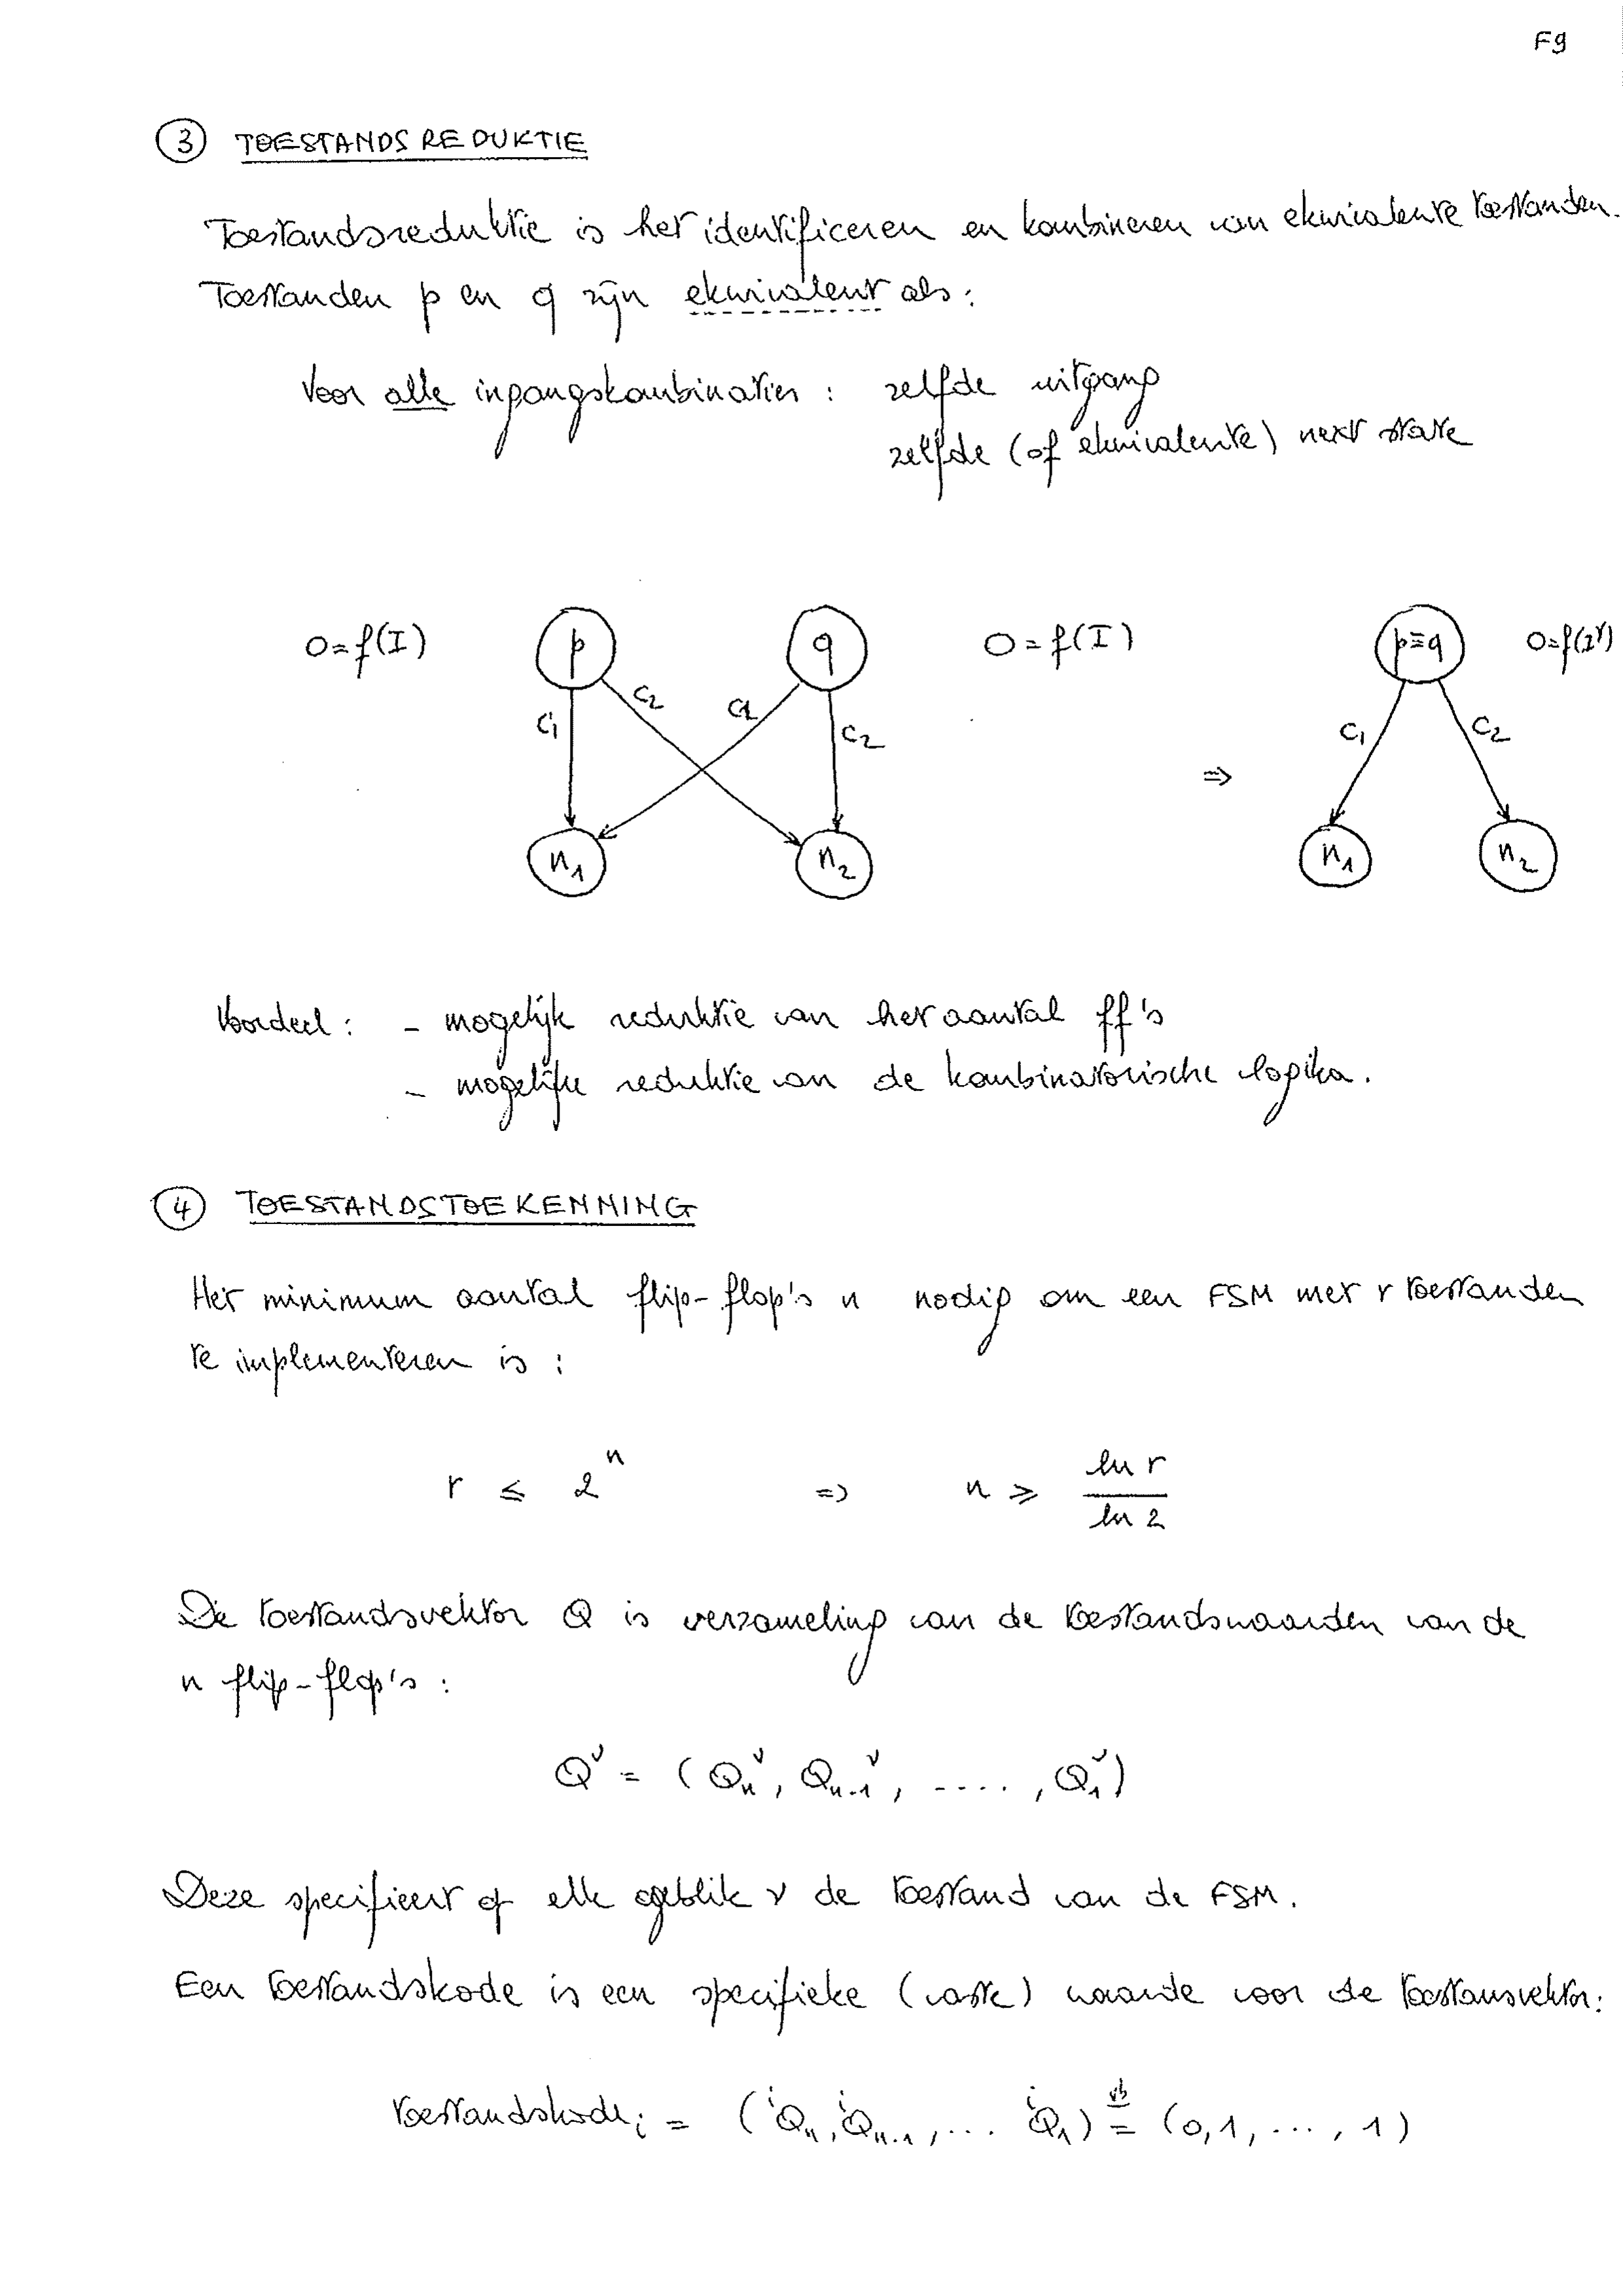 F9
③ TOESTANDSREDUKTIE
Toestandsreduktie is het identificeren en kombineren van ekwivalente toestanden.
Toestanden p en q zijn ekwivalent als:
Voor alle ingangskombinaties : zelfde uitgang
zelfde (of ekwivalente) next state
O=f(I) p q O=f(I) p≡q O=f(I^ν)
C₁ C₂ C₁ C₂ ⇒ C₁ C₂
n₁ n₂ n₁ n₂
Voordeel : - mogelijk reduktie van het aantal ff's
- mogelijke reduktie van de kombinatorische logika.
④ TOESTANDSTOEKENNING
Het minimum aantal flip-flop's n nodig om een FSM met r toestanden
te implementeren is :
r ≤ 2ⁿ => n ≥ ln r / ln 2
De toestandsvektor Q is verzameling van de toestandswaarden van de
n flip-flop's :
Q^ν = (Qₙ^ν, Qₙ₋₁^ν, ...., Q₁^ν)
Deze specifieert op elk ogeblik ν de toestand van de FSM.
Een toestandskode is een specifieke (vaste) waarde voor de toestansvektor:
toestandskodeᵢ = (ⁱQₙ, ⁱQₙ₋₁, ... ⁱQ₁) vb= (0,1, ..., 1)